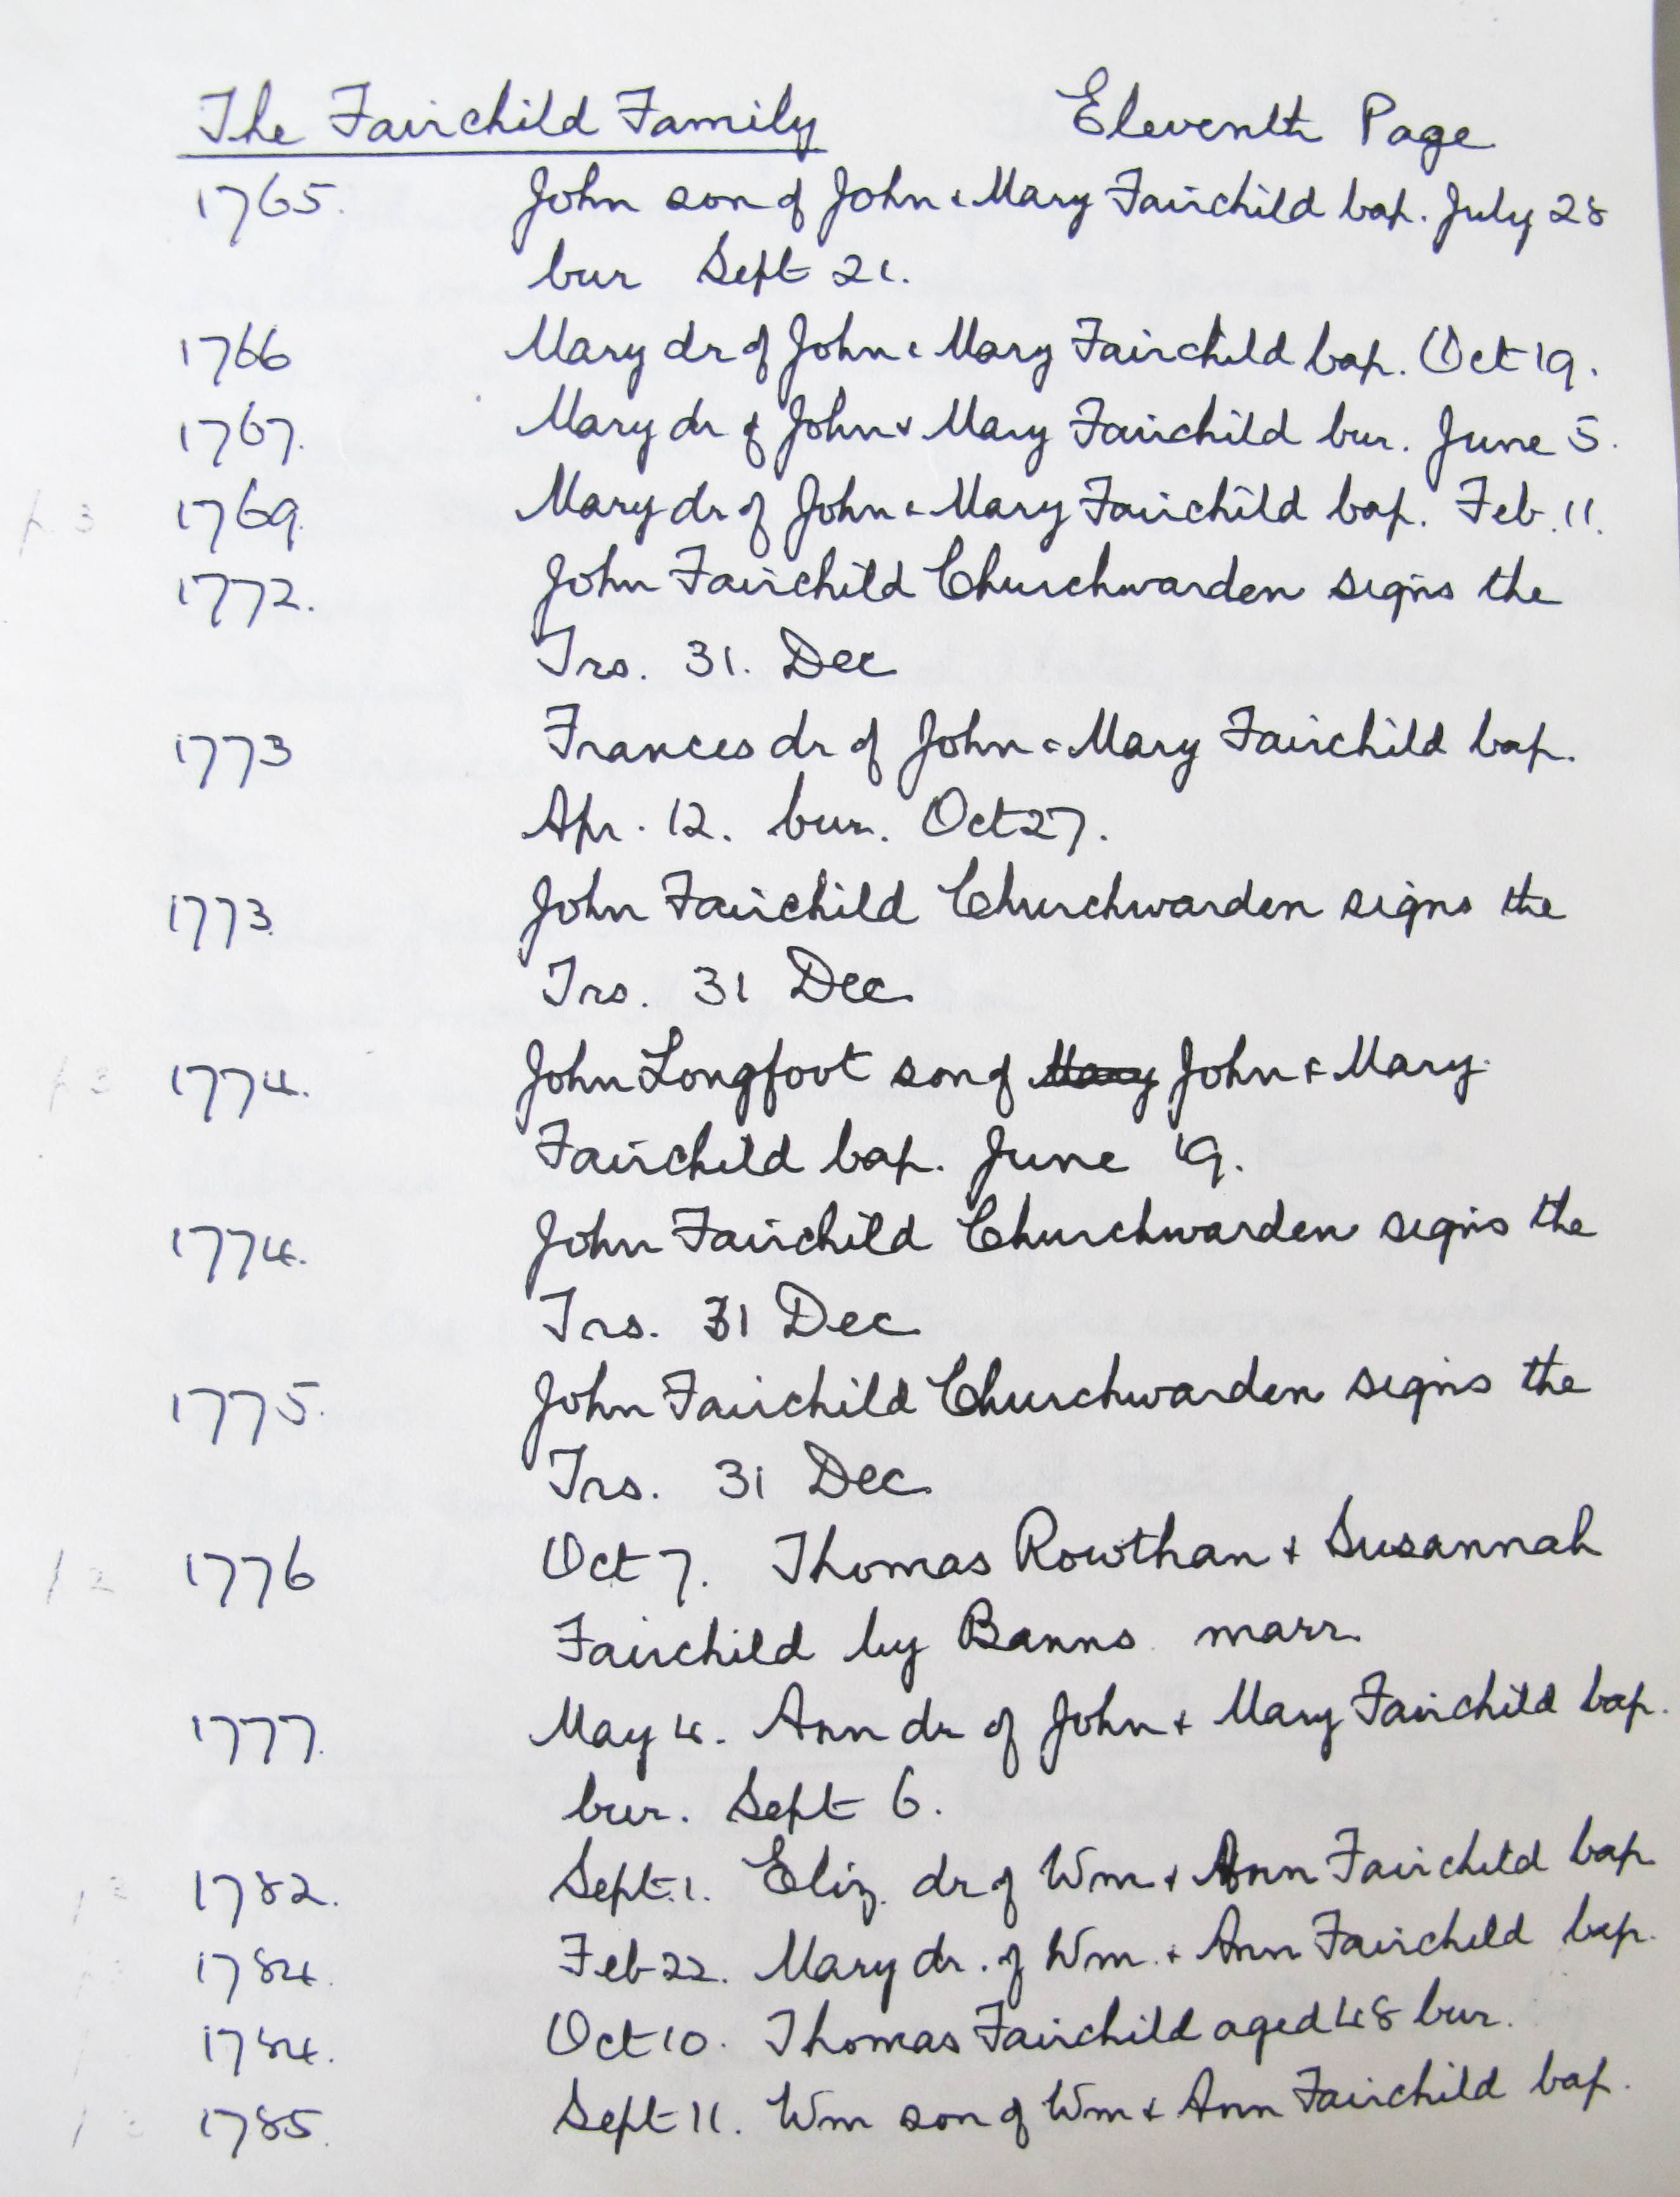 The Fairchild Family Eleventh Page
1765. John son of John & Mary Fairchild bap. July 28
bur Sept 21.
1766 Mary dr of John & Mary Fairchild bap. Oct 19.
1767. Mary dr of John & Mary Fairchild bur. June 5.
p. 3 1769. Mary dr of John & Mary Fairchild bap. Feb. 11.
1772. John Fairchild Churchwarden signs the
Trs. 31. Dec
1773 Frances dr of John & Mary Fairchild bap.
Apr. 12. bur. Oct 27.
1773. John Fairchild Churchwarden signs the
Trs. 31 Dec.
p 3 1774. John Longfoot son of Mary John & Mary
Fairchild bap. June 19.
1774. John Fairchild Churchwarden signs the
Trs. 31 Dec
1775. John Fairchild Churchwarden signs the
Trs. 31 Dec.
1776 Oct 7. Thomas Rowthan & Susannah
Fairchild by Banns. marr.
1777. May 4. Ann dr of John & Mary Fairchild bap.
bur. Sept 6.
1782. Sept. 1. Eliz. dr of Wm & Ann Fairchild bap
1784. Feb 22. Mary dr. of Wm. & Ann Fairchild bap.
1784. Oct 10. Thomas Fairchild aged 48 bur.
1785. Sept 11. Wm son of Wm & Ann Fairchild bap.